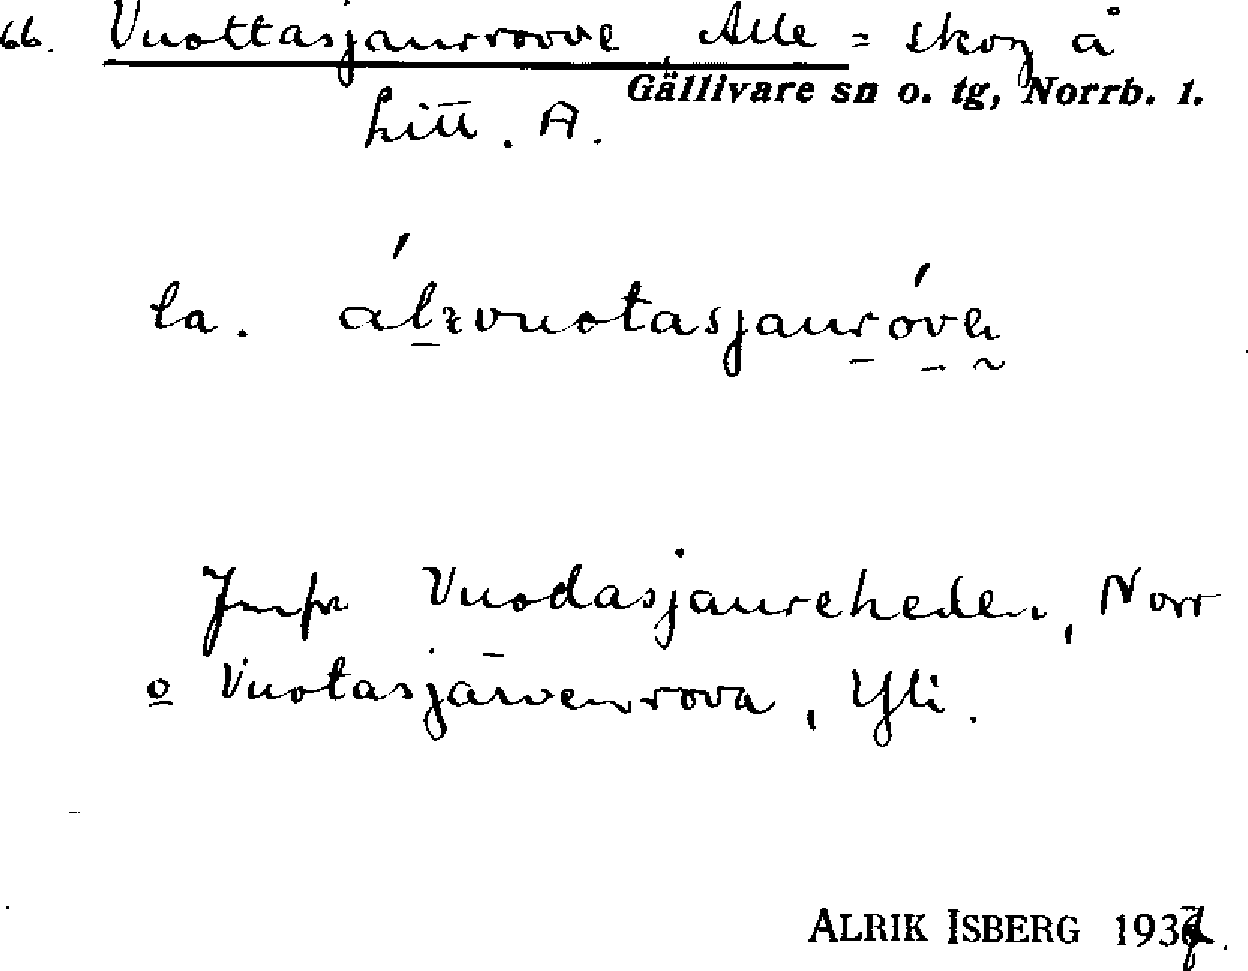 66. Vuottasjaurrovve, Alle = skog å
Gällivare sn o. tg, Norrb. l.
litt. A.
la. álzvuotasjauróva
Jmfr Vuodasjaureheden, Norr
o Vuotasjärvenrova, Yli.
ALRIK ISBERG 1937.